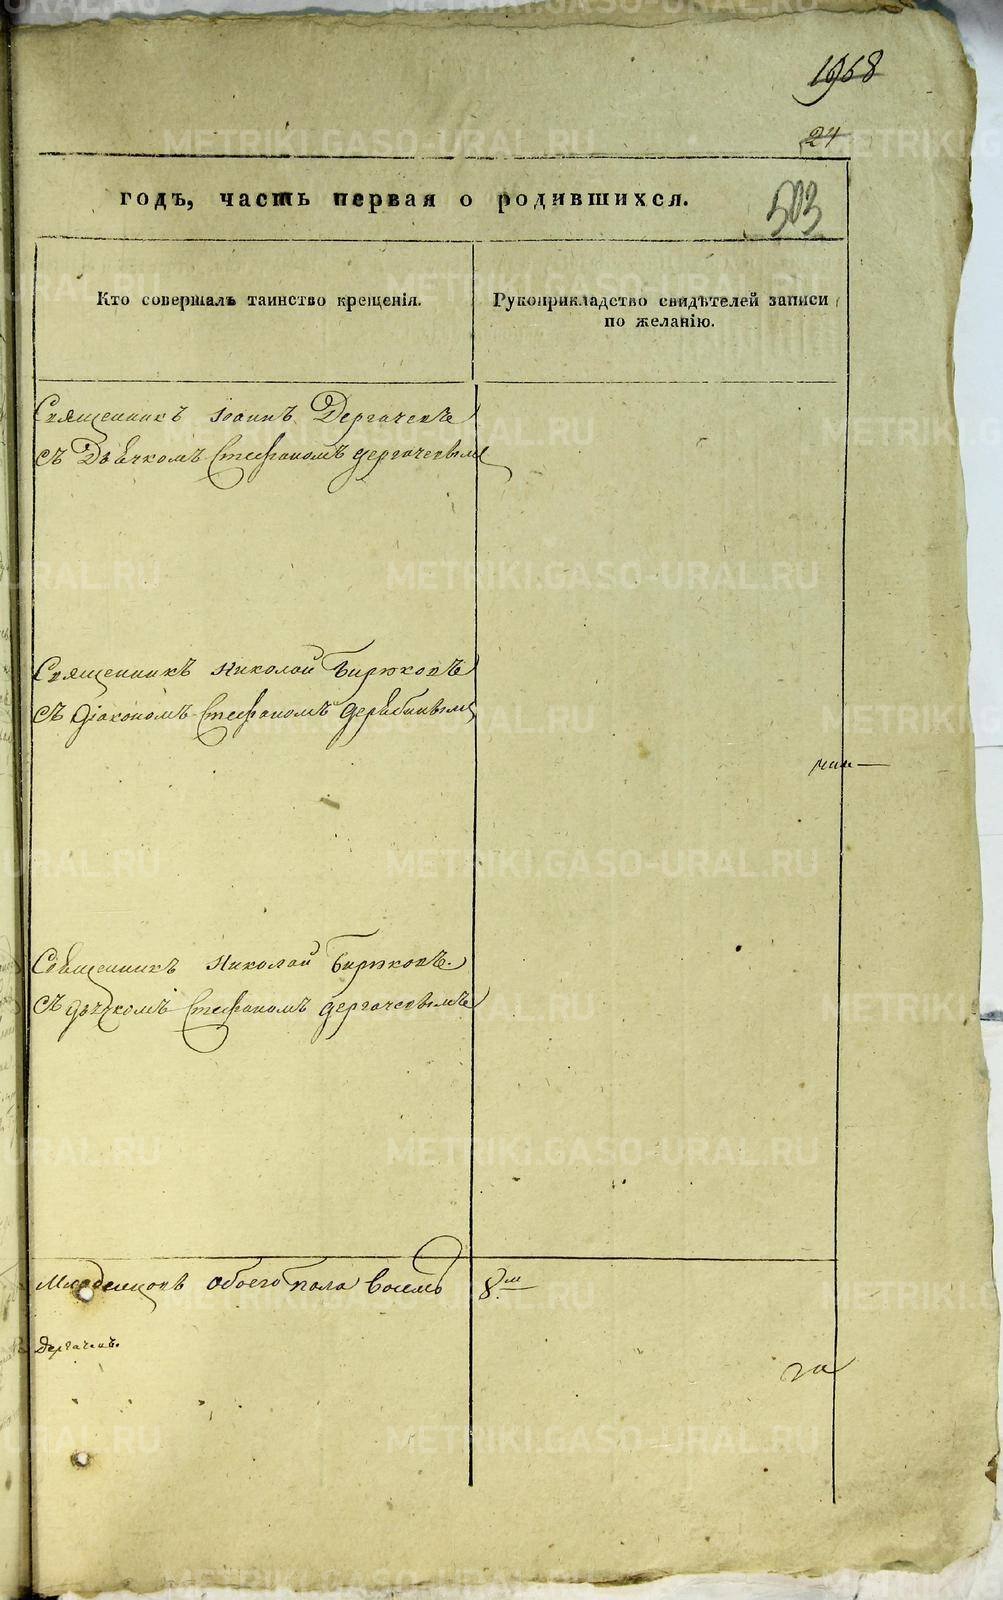 1968
24
503
годъ, часть первая о родившихся.
Кто совершалъ таинство крещенія.
Рукоприкладство свидѣтелей записи
по желанію.
Священникъ Іоаннъ Дергачевъ
съ Дьячкомъ Стефаномъ Дергачевымъ
Священникъ Николай Бирюковъ
съ Діакономъ Стефаномъ Дерябинымъ
Священникъ Николай Бирюковъ.
съ Дьячкомъ Стефаномъ Дергачевымъ
Младенцовъ обоего пола восемь
8.
Дергачевъ.
METRIKI.GASO-URAL.RU